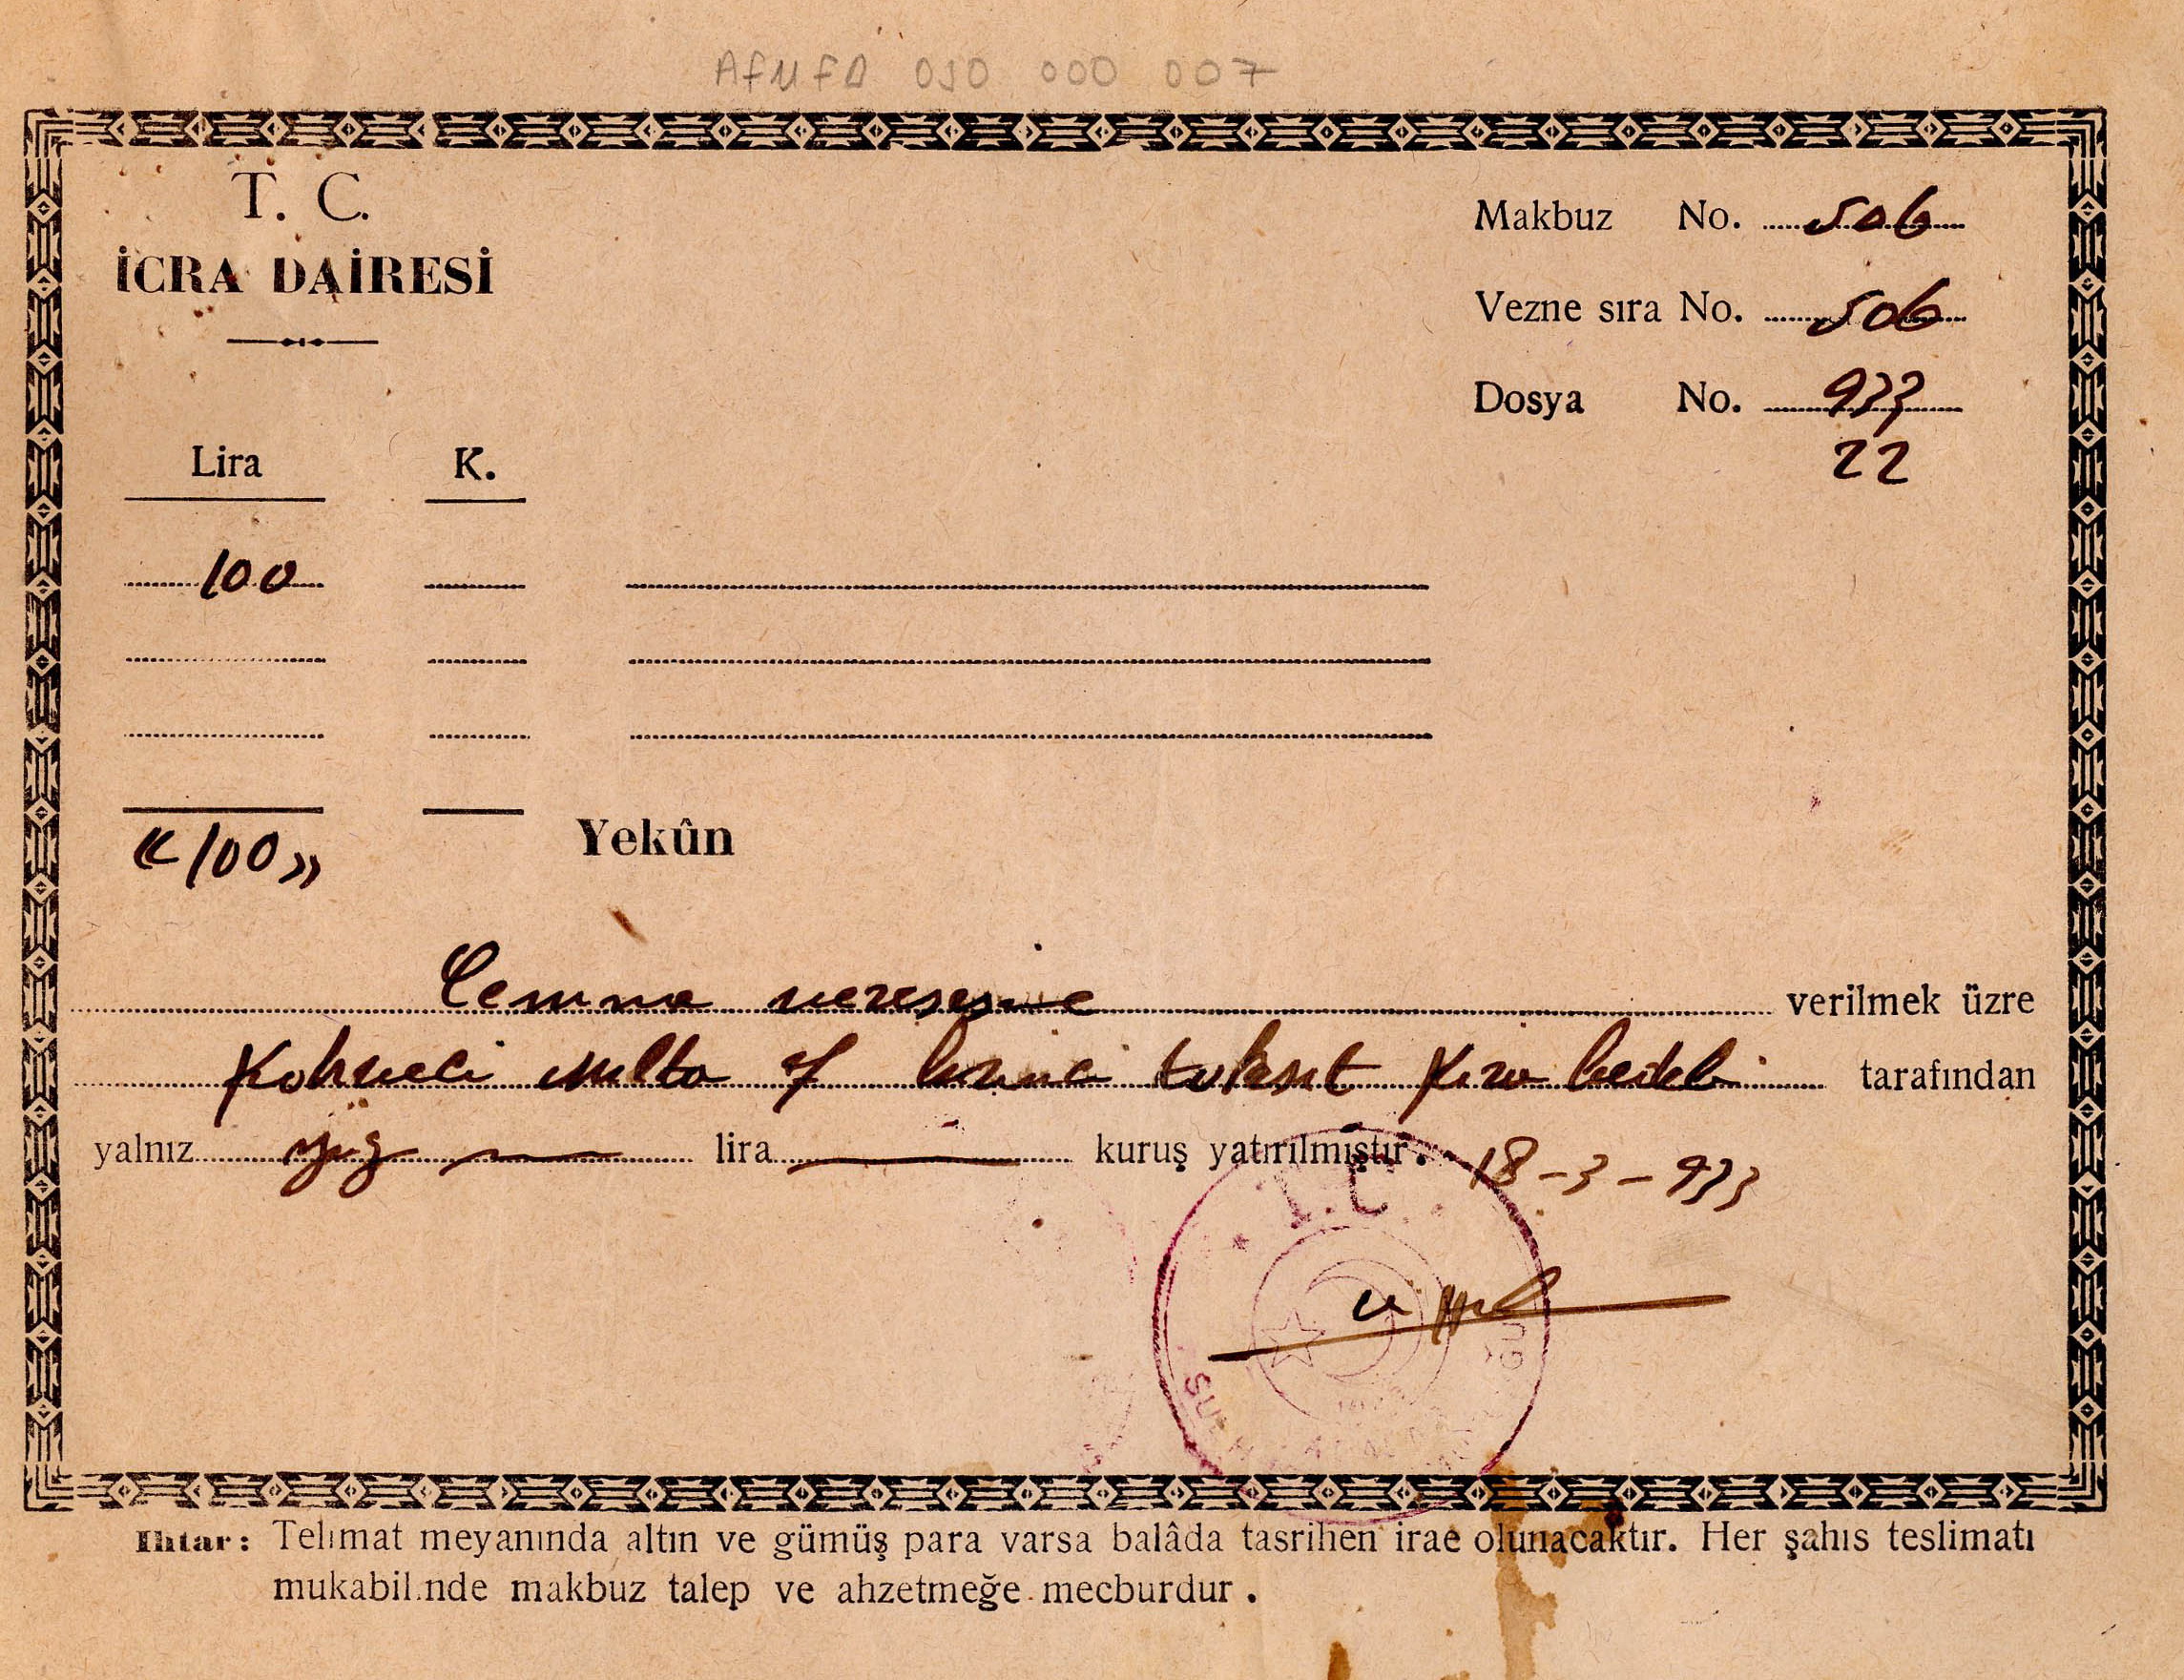 AFMFD 030 000 007
T. C.
İCRA DAİRESİ
Makbuz No. 506
Vezne sıra No. 506
Dosya No. 933
22
Lira K.
100
«100» Yekûn
veresesine verilmek üzre
taksit bedeli tarafından
yalnız yüz lira kuruş yatırılmıştır. 18-3-933
T. C.
Ihtar: Telimat meyanında altın ve gümüş para varsa balâda tasrihen irae olunacaktır. Her şahıs teslimatı
mukabil.nde makbuz talep ve ahzetmeğe mecburdur.